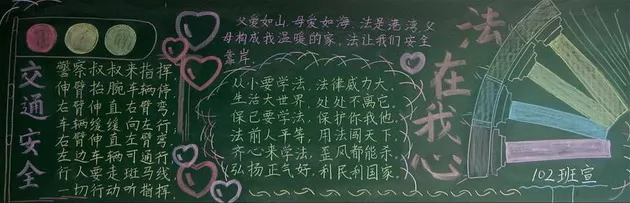 交通安全
警察叔叔来指挥，
伸臂抬腕车辆停
右臂伸直右臂弯，
车辆缓缓向左行
左臂伸直左臂弯，
右边车辆可通行
行人要走斑马线
一切行动听指挥，
父爱如山，母爱如海，法是港湾父
母构成我温暖的家，法让我们安全
靠岸。
从小要学法，法律威力大，
生活大世界，处处不离它，
保己要学法，保护你我他，
法前人平等，用法闯天下，
齐心来学法，歪风都能杀，
弘扬正气好，利民利国家，
法在我心
102班宣